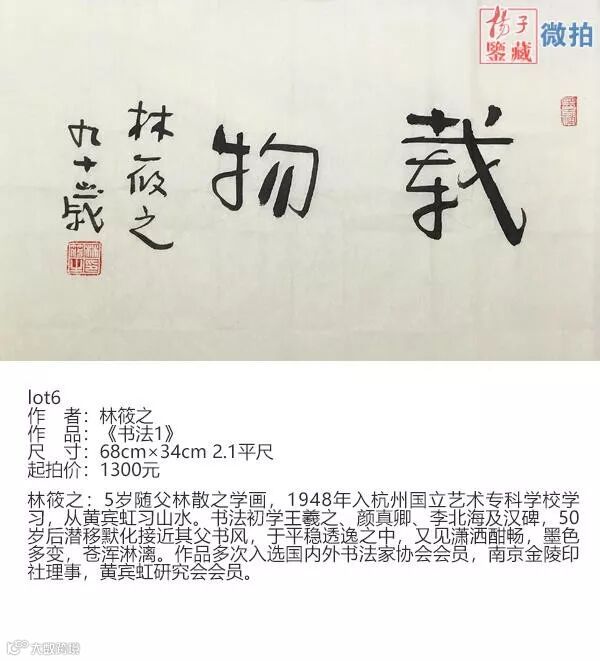 扬子
鉴藏
微拍
载物
林筱之
九十岁
lot6
作 者：林筱之
作 品：《书法1》
尺 寸：68cm×34cm 2.1平尺
起拍价：1300元
林筱之：5岁随父林散之学画，1948年入杭州国立艺术专科学校学
习，从黄宾虹习山水。书法初学王羲之、颜真卿、李北海及汉碑，50
岁后潜移默化接近其父书风，于平稳透逸之中，又见潇洒酣畅，墨色
多变，苍浑淋漓。作品多次入选国内外书法家协会会员，南京金陵印
社理事，黄宾虹研究会会员。
大歐跨境